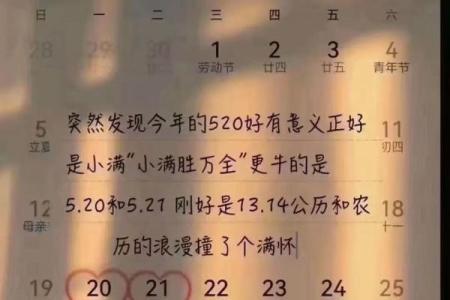 日 一 二 三 四 五 六
28 29 30 1 2 3 4
劳动节 廿四 廿五 青年节
突然发现今年的520好有意义正好
5 11
立夏 初四
是小满“小满胜万全”更牛的是
12 18
母亲 十一
5.20和5.21 刚好是13.14公历和农
历的浪漫撞了个满怀
19 20 21 22 23 24 25